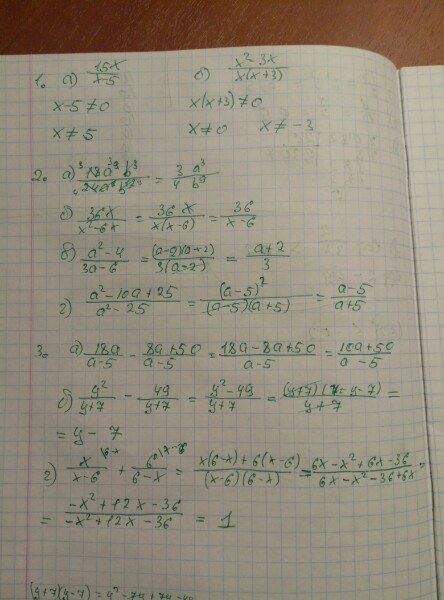 1. а) 15x/(x-5) б) (x²-3x)/(x(x+3))
x-5≠0 x(x+3)≠0
x≠5 x≠0 x≠-3
= 3/4 a³/b⁹
б) 36x/(x²-6x) = 36x/(x(x-6)) = 36/(x-6)
в) (a²-4)/(3a-6) = (a-2)(a+2)/(3(a-2)) = (a+2)/3
г) (a²-10a+25)/(a²-25) = (a-5)²/((a-5)(a+5)) = (a-5)/(a+5)
3. а) 18a/(a-5) - (8a+50)/(a-5) = (18a-8a+50)/(a-5) = (10a+50)/(a-5)
б) y²/(y+7) - 49/(y+7) = (y²-49)/(y+7) =
= y-7
г) x/(x-6) + 6/(6-x) = (x(6-x)+6(x-6))/((x-6)(6-x)) = (6x-x²+6x-36)/(6x-x²-36+6x)
= (-x²+12x-36)/(-x²+12x-36) = 1
(y+7)(y-7) = y²-7y+7y-49